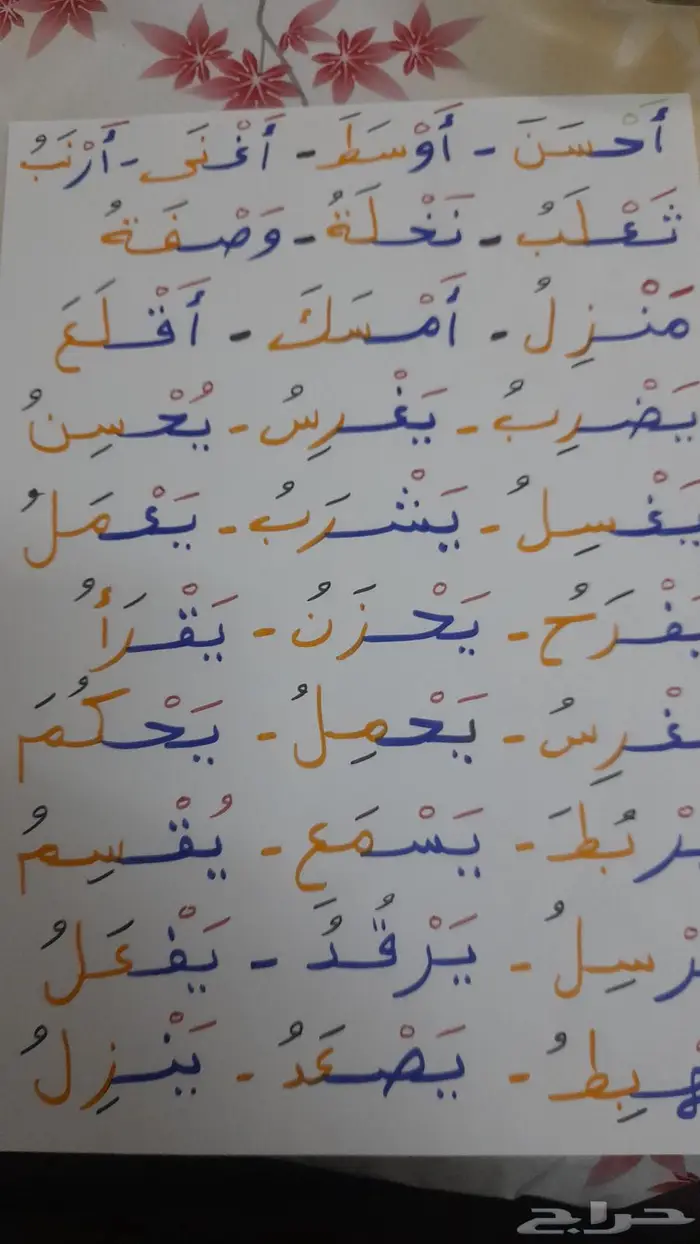 أَحْسَنَ - أَوْسَطَ - أَغْنَى - أَرْنَبُ
ثَعْلَبُ - نَخْلَةُ - وَصْفَةُ
مَنْزِلُ - أَمْسَكَ - أَقْلَعَ
يَضْرِبُ - يَغْرِسُ - يُحْسِنُ
يَغْسِلُ - يَشْرَبُ - يَعْمَلُ
يَفْرَحُ - يَحْزَنُ - يَقْرَأُ
يَغْرِسُ - يَحْمِلُ - يَحْكُمَ
يَرْبُطَ - يَسْمَع - يُقْسِمُ
يَرْسِلُ - يَرْقُدُ - يَفْعَلُ
يَهْبِطُ - يَصْعَدُ - يَنْزِلُ
حراج